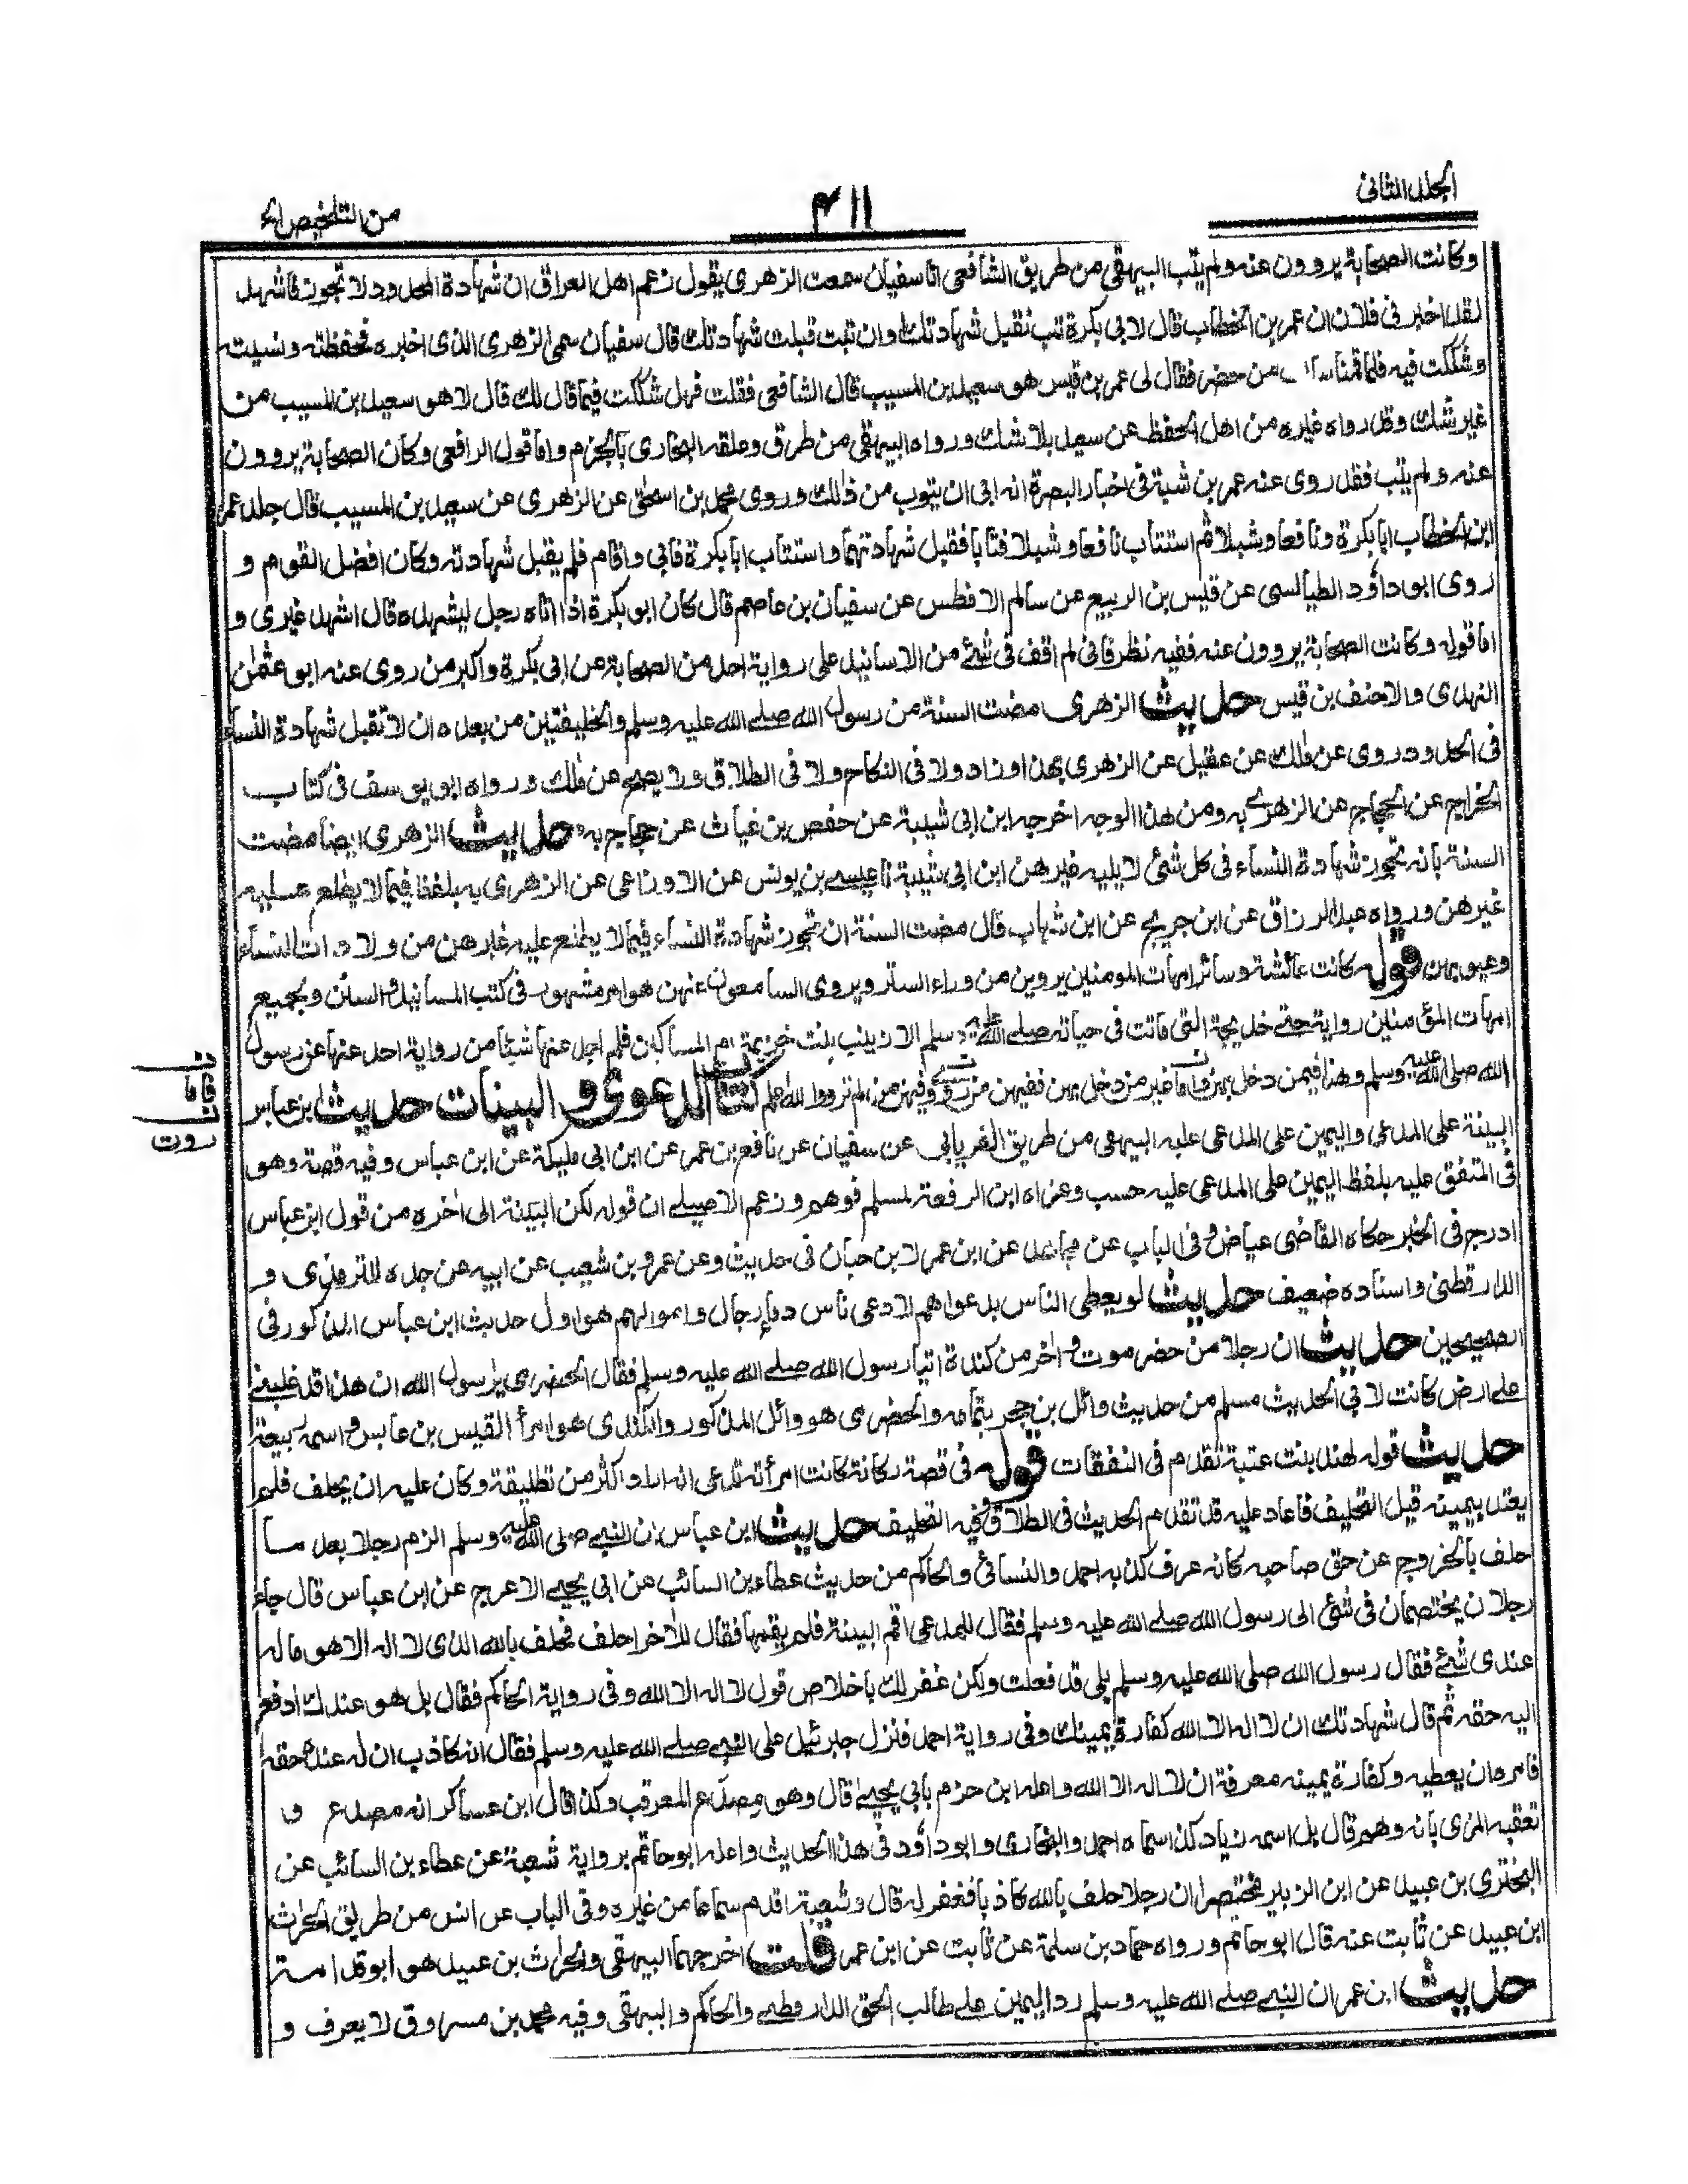 الجلد الثانى
٤١١
من التلخيص الح
وكانت الصحابة يروون عنه ولم يتب البيهقي من طريق الشافعى انا سفيان سمعت الزهرى يقول زعم اهل العراق ان شهادة المحدود لا تجوز فاشهد
لقد اخبرنى فلان ان عمر بن الخطاب قال لابى بكرة تب نقبل شهادتك وان تبت قبلت شهادتك قال سفيان سمى الزهرى الذى اخبره فحفظته ونسيته
وشككت فيه فلما قمنا من حضر فقال لى عمر بن قيس هو سعيد بن المسيب قال الشافعى فقلت فهل شككت فيما قال لك قال لا هو سعيد بن المسيب من
غير شك وقد رواه غيره من اهل الحفظ عن سعيد بلا شك ورواه البيهقي من طرق وعلقه البخارى بالجزم واما قول الرافعى وكان الصحابة يروون
عنه ولم يتب فقد روى عنه عمر بن شبة فى اخبار البصرة انه ابى ان يتوب من ذلك وروى محمد بن اسحٰق عن الزهرى عن سعيد بن المسيب قال جلد عمر
ابن الخطاب ابا بكرة ونافعا وشبلا ثم استتاب نافعا وشبلا فتابا فقبل شهادتهما واستتاب ابا بكرة فابى واقام فلم يقبل شهادته وكان افضل القوم و
روى ابو داؤد الطيالسى عن قيس بن الربيع عن سالم الافطس عن سفيان بن عاصم قال كان ابو بكرة اذا اتاه رجل ليشهده قال اشهد غيرى و
اما قوله وكانت الصحابة يروون عنه ففيه نظر فانى لم اقف فى شئ من الاسانيد على رواية احد من الصحابة عن ابى بكرة واكبر من روى عنه ابو عثمٰن
النهدى والاحنف بن قيس حديث الزهرى مضت السنة من رسول الله صلے الله عليه وسلم والخليفتين من بعده ان لا تقبل شهادة النساء
فى الحدود روى عن مٰلك عن عقيل عن الزهرى بهذا وزاد ولا فى النكاح ولا فى الطلاق ولا يصح عن مٰلك ورواه ابو يوسف فى كتاب
الخراج عن الحجاج عن الزهرے به ومن هذا الوجه اخرجه ابن ابى شيبة عن حفص بن غياث عن حجاج به حديث الزهرى ايضا مضت
السنة بانه تجوز شهادة النساء فى كل شئ لا يليه غيرهن ابن ابى شيبة نا عيسے بن يونس عن الاوزاعى عن الزهرى به بلفظ فيما لا يطلع عليه
غيرهن ورواه عبد الرزاق عن ابن جريج عن ابن شهاب قال مضت السنة ان تجوز شهادة النساء فيما لا يطلع عليه غيرهن من ولادات النساء
وعيوبهن قوله كانت عائشة وسائر امهات المومنين يروين من وراء الستر ويروى السامعون عنهن هو امر مشهور فى كتب المسانيد والسنن ولجميع
امهات المؤمنين رواية حتے خديجة التى ماتت فى حياته صلے الله عليه وسلم الا زينب بنت خزيمة ام المساكين فلم اجد عنها شيئا من رواية احد عنها عن رسول
الله صلى الله عليه وسلم وهذا فيمن دخل بهن واما غير من دخل بهن ففيهن من وفيهن من لم ترو والله اعلم كتاب الدعوى و البينات حديث ابن عباس
البينة على المدعى واليمين على المدعى عليه البيهقى من طريق الفريابى عن سفيان عن نافع بن عمر عن ابن ابى مليكة عن ابن عباس وفيه قصة وهو
فى المتفق عليه بلفظ اليمين على المدعى عليه حسب وعزاه ابن الرفعة لمسلم فوهم وزعم الاصيلے ان قوله لكن البينة الى اٰخره من قول ابن عباس
ادرج فى الخبر حكاه القاضى عياض وفى الباب عن مجاهد عن ابن عمر لابن حبان فى حديث وعن عمرو بن شعيب عن ابيه عن جده للترمذى و
الدارقطنى واسناده ضعيف حديث لو يعطى الناس بدعواهم لادعى ناس دماء رجال واموالهم هو اول حديث ابن عباس المذكور فى
الصحيحين حديث ان رجلا من حضرموت واٰخر من كندة اتيا رسول الله صلے الله عليه وسلم فقال الحضرمى يا رسول الله ان هذا قد غلبنے
علے ارض كانت لابى الحديث مسلم من حديث وائل بن حجر بتمامه والحضرمى هو وائل المذكور والكندى هو امرأ القيس بن عابس واسمه ربيعة
حديث قوله لهند بنت عتبة تقدم فى النفقات قوله فى قصة ركانة كانت امرأته تدعى انه اراد اكثر من تطليقة وكان عليه ان يحلف فلم
يعتد بيمينه قبل التحليف فاعاد عليه قد تقدم الحديث فى الطلاق وفيه التحليف حديث ابن عباس ان النبے صلى الله عليه وسلم الزم رجلا بعد ما
حلف بالخروج عن حق صاحبه كانه عرف كذبه احمد والنسائى والحاكم من حديث عطاء بن السائب عن ابى يحيے الاعرج عن ابن عباس قال جاء
رجلان يختصمان فى شئ الى رسول الله صلے الله عليه وسلم فقال للمدعى اقم البينة فلم يقمها فقال للاٰخر احلف فحلف بالله الذى لا اله الا هو ما له
عندى شئے فقال رسول الله صلى الله عليه وسلم بلى قد فعلت ولكن غفر لك باخلاص قول لا اله الا الله وفى رواية الحاكم فقال بل هو عندك ادفع
اليه حقه ثم قال شهادتك ان لا اله الا الله كفارة يمينك وفى رواية احمد فنزل جبرئيل على النبے صلے الله عليه وسلم فقال انه كاذب ان له عنده حقه
فامره ان يعطيه وكفارة يمينه معرفة ان لا اله الا الله واعله ابن حزم بابى يحيے قال وهو مصدع المعرقب وكذا قال ابن عساكر انه مصدع و
تعقبه المزى بانه وهم قال بل اسمه زياد كذا اسماه احمد والبخارى وابو داؤد فى هذا الحديث واعله ابو حاتم برواية شعبة عن عطاء بن السائب عن
البخترى بن عبيد عن ابن الزبير مختصرا ان رجلا حلف بالله كاذبا فغفر له قال وشعبة اقدم سماعا من غيره وفى الباب عن انس من طريق الحٰرث
ابن عبيد عن ثابت عنه قال ابو حاتم ورواه حماد بن سلمة عن ثابت عن ابن عمر قلت اخرجهما البيهقى والحٰرث بن عبيد هو ابو قدامة
حديث ابن عمر ان النبے صلے الله عليه وسلم رد اليمين علے طالب الحق الدارقطنے والحاكم والبيهقى وفيه محمد بن مسروق لا يعرف و